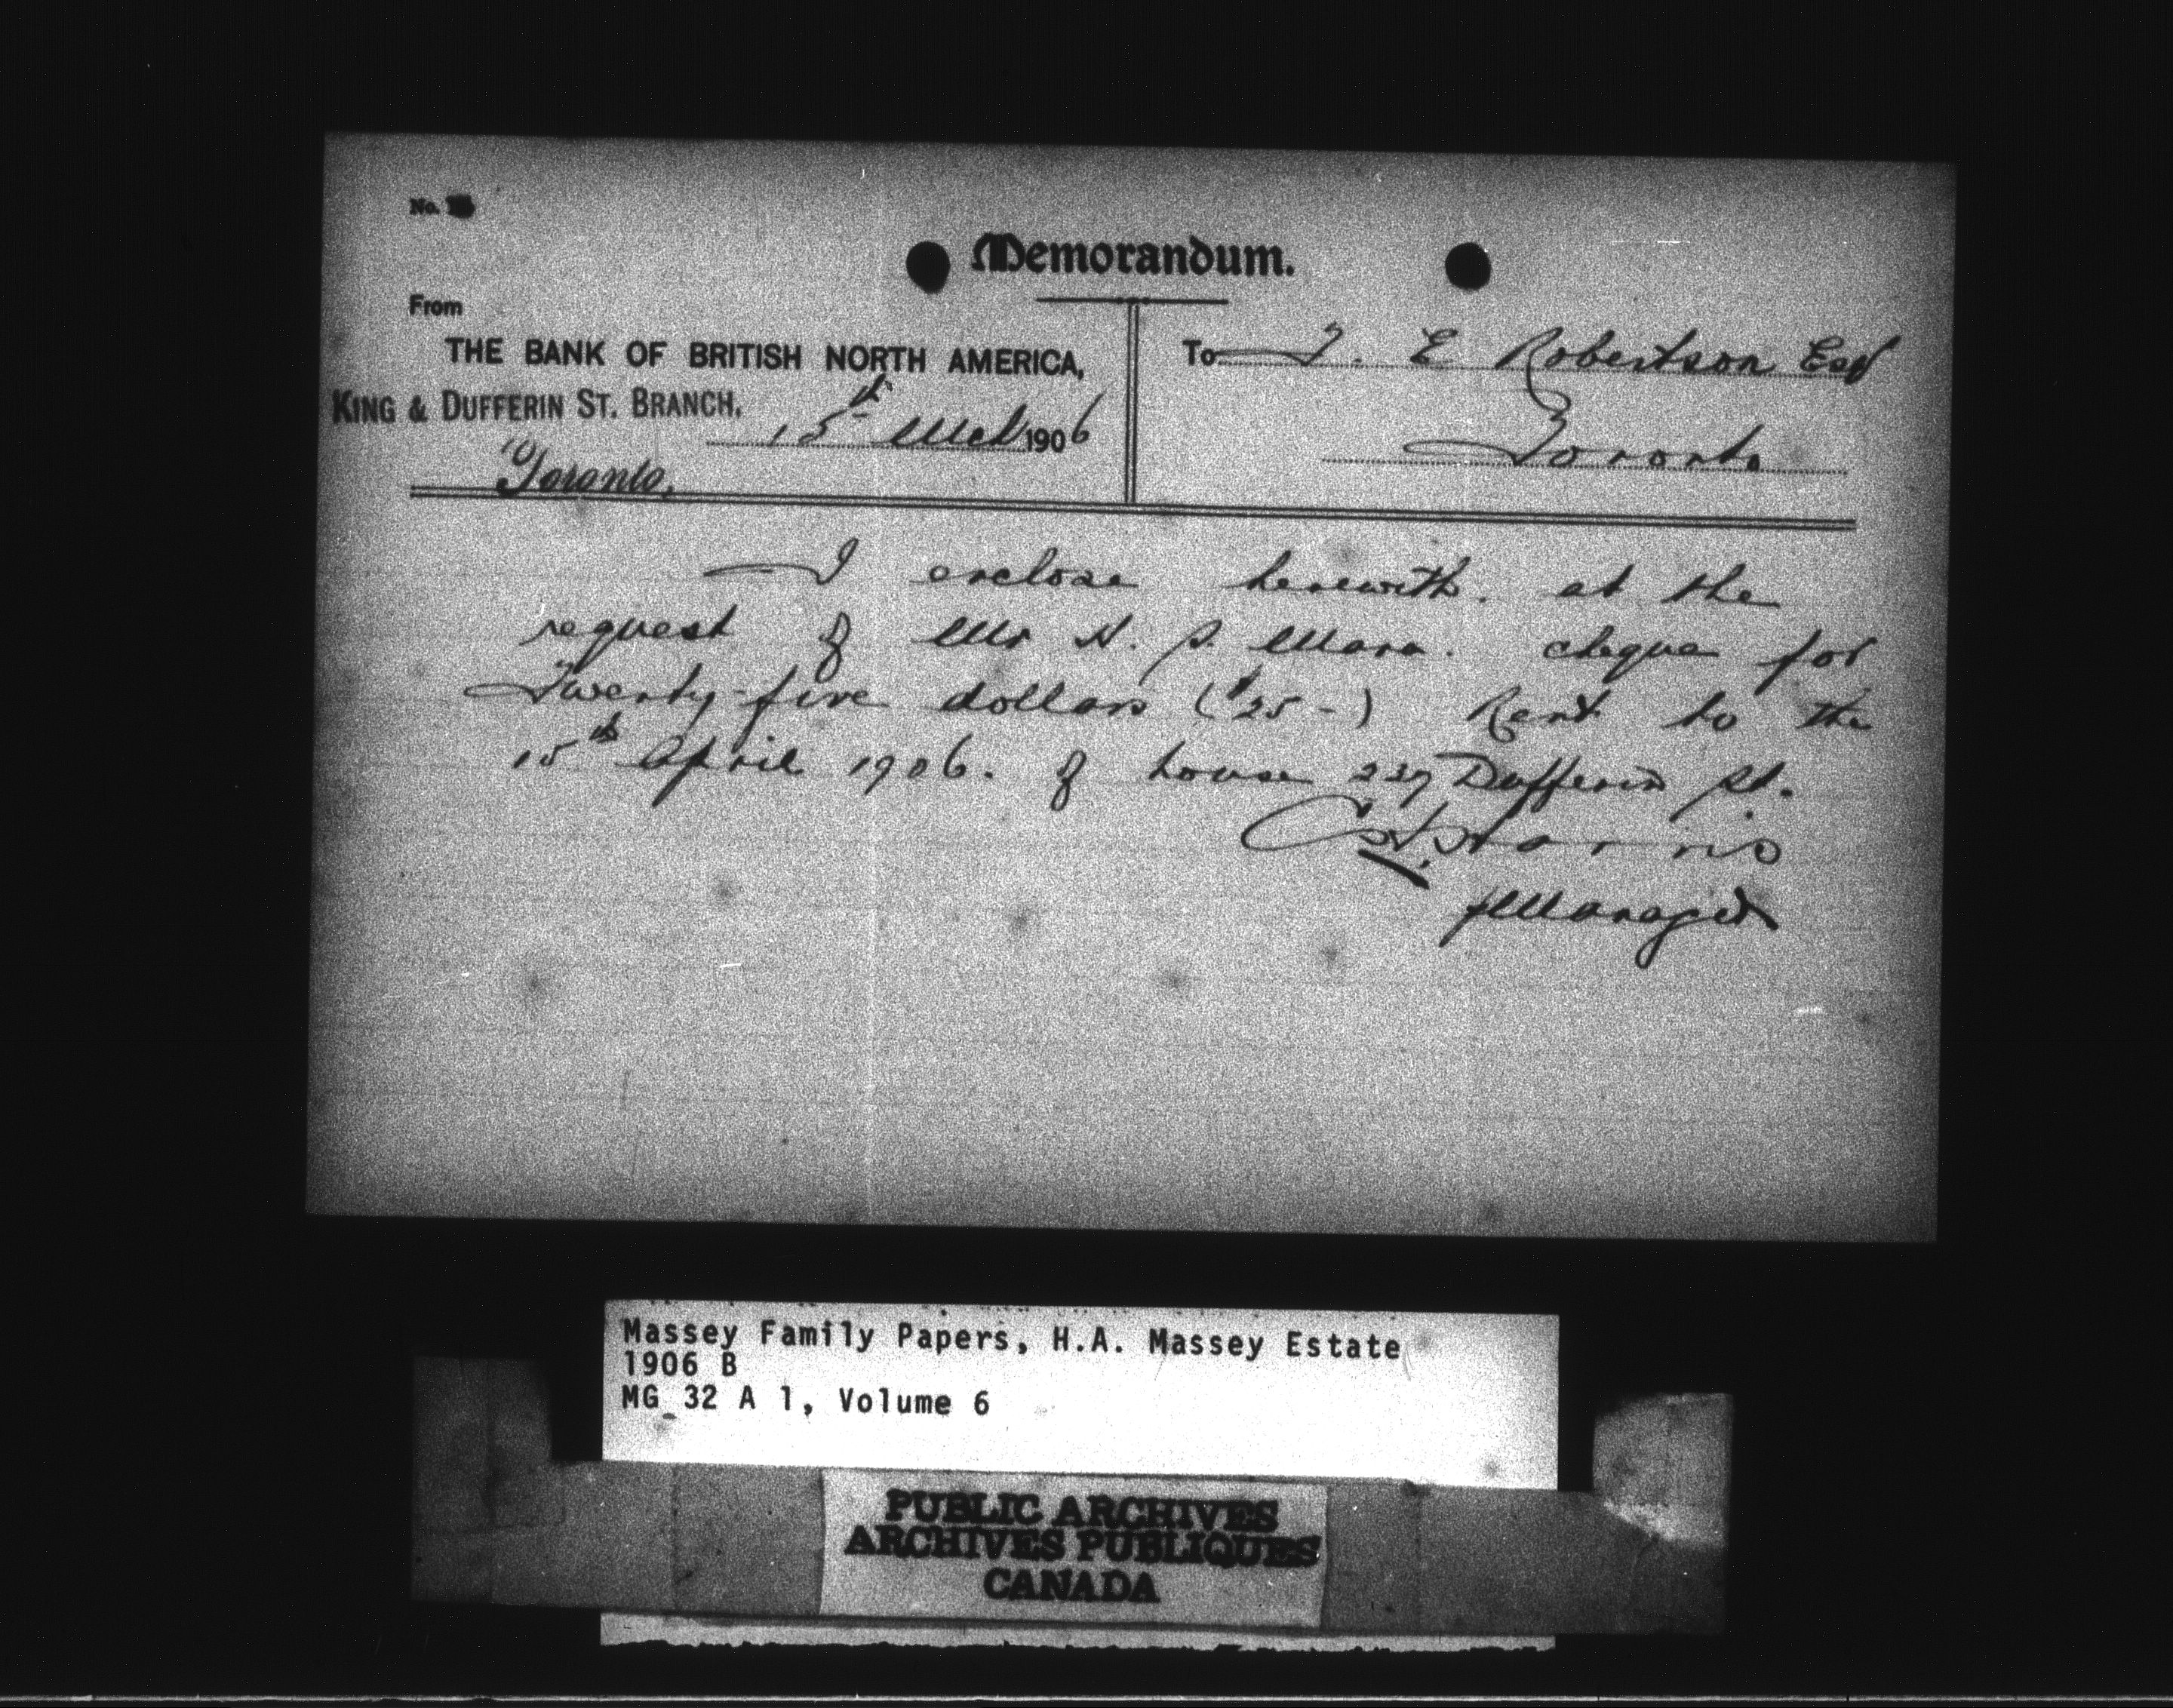 No.
Memorandum.
From
THE BANK OF BRITISH NORTH AMERICA,
KING & DUFFERIN ST. BRANCH.
15th Mch 1906
Toronto,
To J. E Robertson Esq
Toronto
I enclose herewith. at the
request of Mr H. S. Mara. cheque for
Twenty-five dollars ($25-) Rent to the
15th April 1906. of house 237 Dufferin St.
Manager
Massey Family Papers, H.A. Massey Estate
1906 B
MG 32 A 1, Volume 6
PUBLIC ARCHIVES
ARCHIVES PUBLIQUES
CANADA